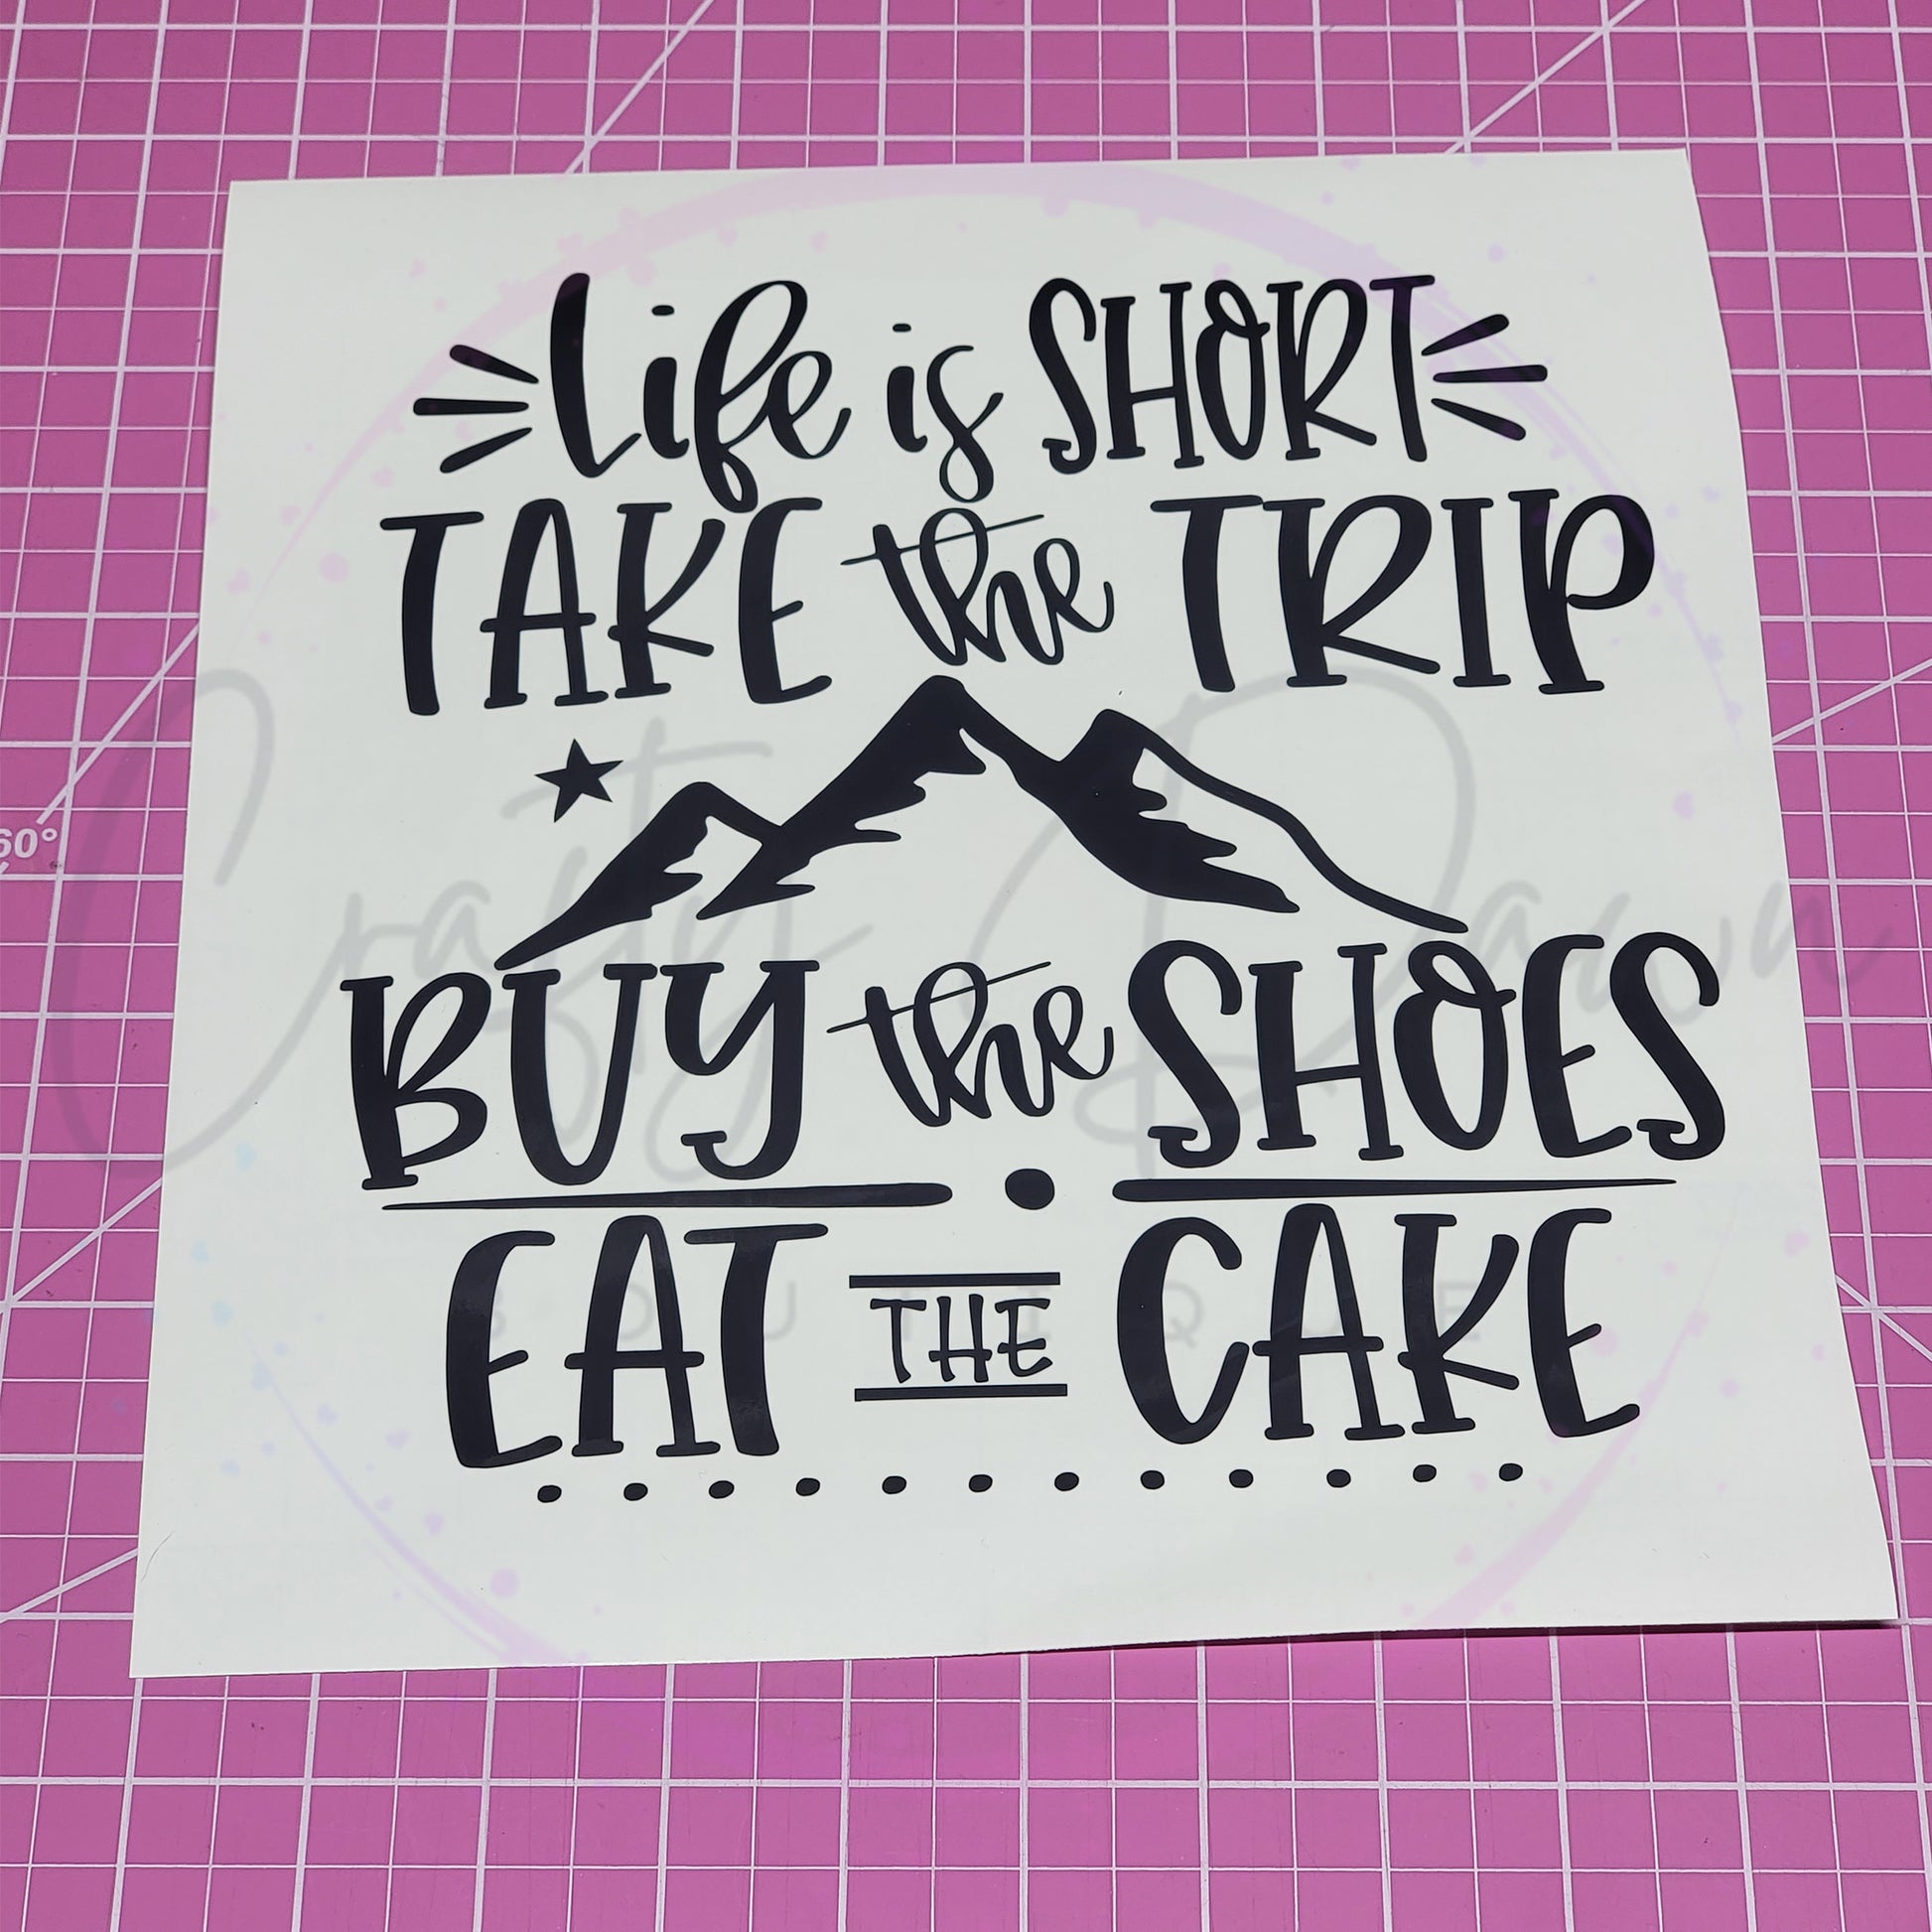 Life is SHORT
TAKE the TRIP
60°
Crafty Dawn
BUY the SHOES
EAT THE CAKE
BOUTIQUE